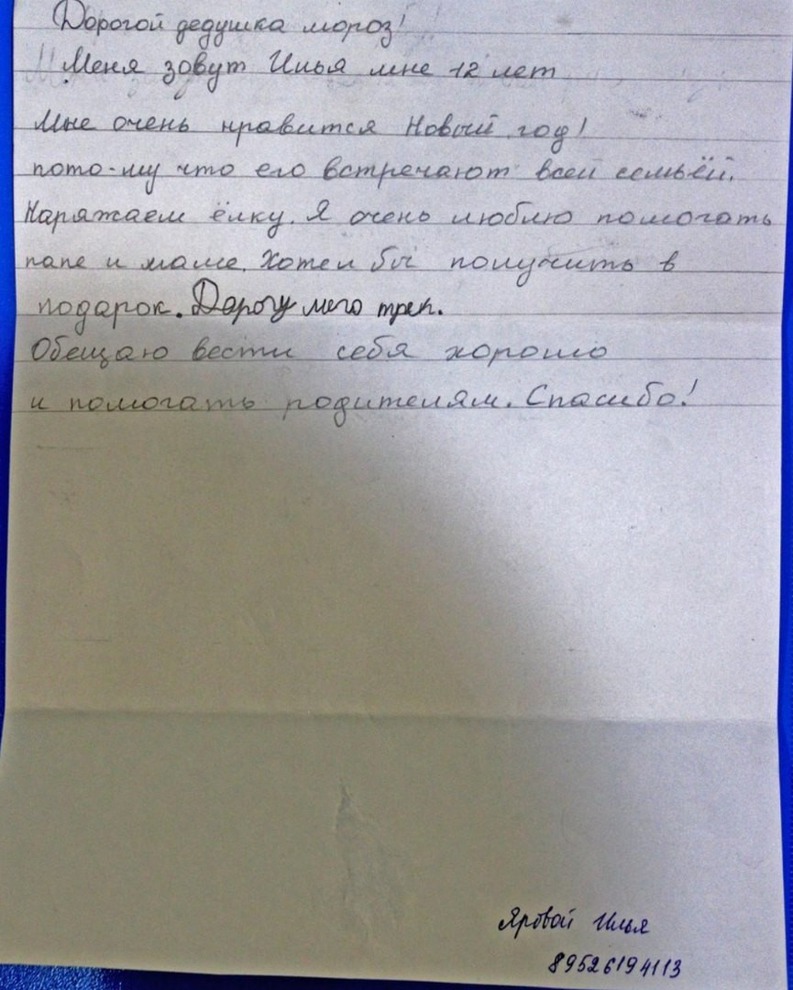 Дорогой дедушка мороз!
Меня зовут Илья мне 12 лет
Мне очень нравится Новый год!
пото-му что его встречают всей семьёй.
Наряжаем ёлку. Я очень люблю помогать
папе и маме. Хотел бы получить в
подарок. Дорогу мего трек.
Обещаю вести себя хорошо
и помогать родителям. Спасибо!
Яровой Илья
89526194113